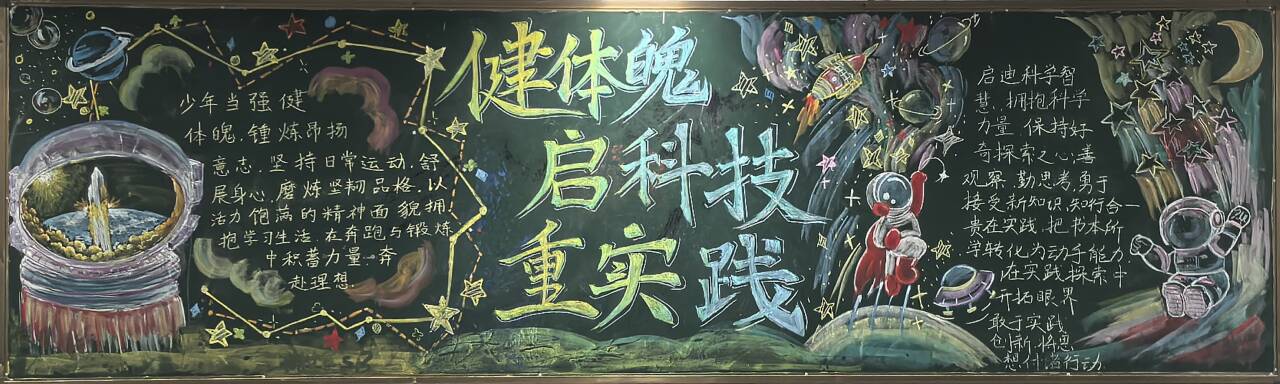 少年当强健
体魄,锤炼昂扬
意志,坚持日常运动,舒
展身心,磨炼坚韧品格,以
活力饱满的精神面貌拥
抱学习生活,在奔跑与锻炼
中积蓄力量,奔
赴理想.
健体魄
启科技
重实践
启迪科学智
慧,拥抱科学
力量,保持好
奇探索之心,善
观察,勤思考,勇于
接受新知识,知行合一
贵在实践,把书本所
学转化为动手能力
在实践探索中
开拓眼界
敢于实践
创新,将思
想付诸行动